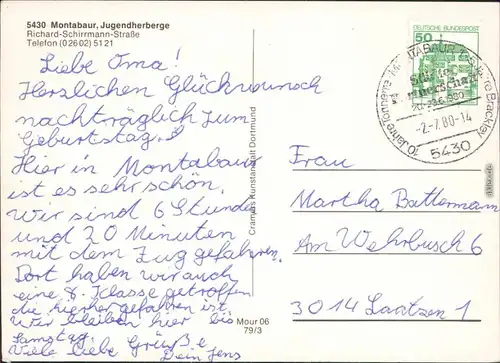 5430 Montabaur, Jugendherberge
Richard-Schirrmann-Straße
Telefon (0 26 02) 51 21
Liebe Oma!
Herzlichen Glückwunsch
nachträglich zum
Geburtstag.
Hier in Montabaur
ist es sehr schön.
Wir sind 6 Stunden
und 20 Minuten
mit dem Zug gefahren.
Dort haben wir auch
eine 8. Klasse getroffen
die hierher gefahren ist
Wir bleiben hier bis
Samstag.
Viele liebe Grüße
Dein Jens
Cramers Kunstanstalt Dortmund
Mour 06
79/3
DEUTSCHE BUNDESPOST
50
MONTABAUR
10 Jahre Tonnerre
Brackley
-2.-7.80-14
5430
Frau
Martha Battermann
Am Wehrbusch 6
3014 Laatzen 1